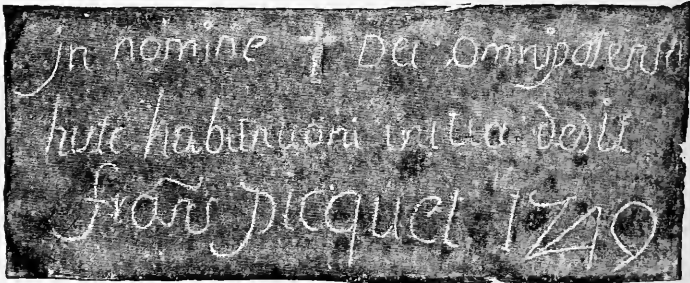 In nomine † Dei omnipotentis
huic habitationi initia dedit
frañs picquet 1749